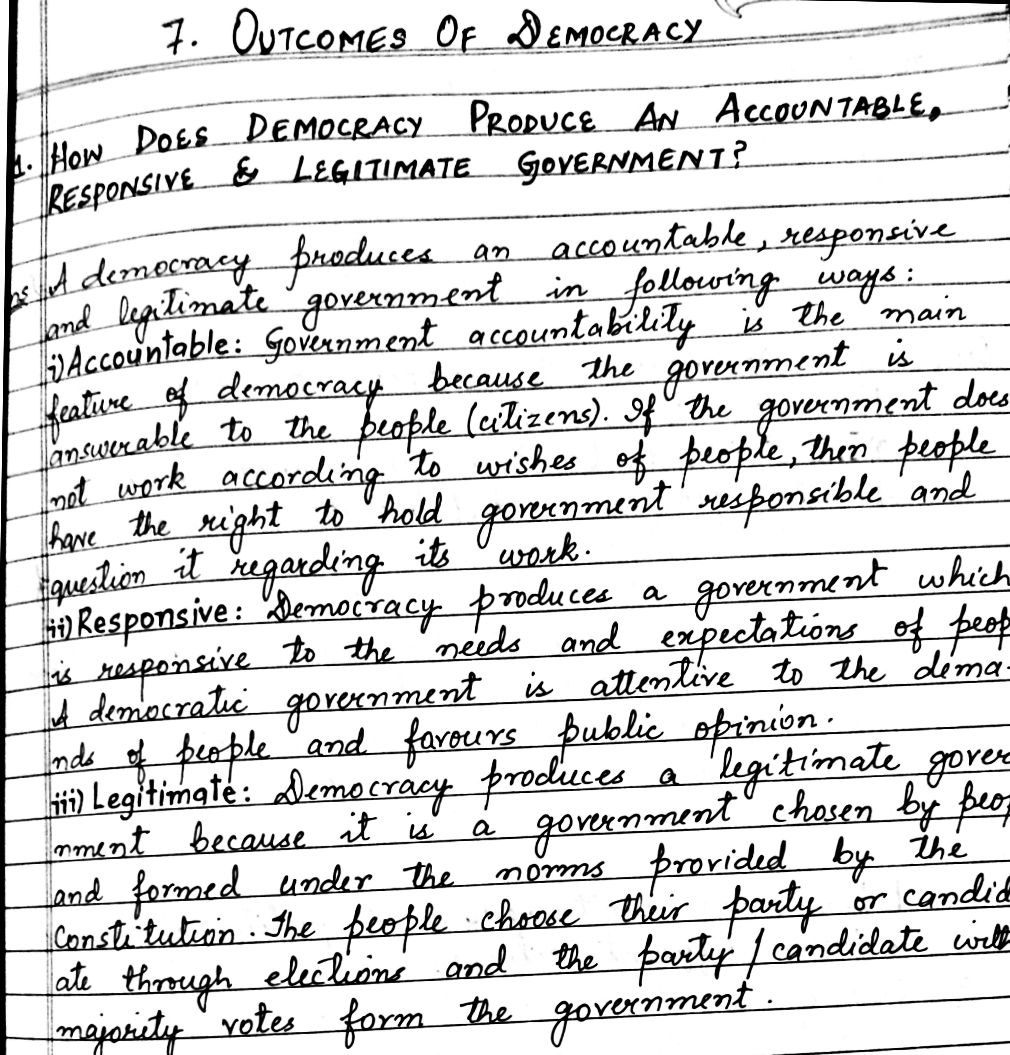 7. OUTCOMES OF DEMOCRACY
1. HOW DOES DEMOCRACY PRODUCE AN ACCOUNTABLE,
RESPONSIVE & LEGITIMATE GOVERNMENT?
ns A democracy produces an accountable, responsive
and legitimate government in following ways:
i) Accountable: Government accountability is the main
feature of democracy because the government is
answerable to the people (citizens). If the government does
not work according to wishes of people, then people
have the right to hold government responsible and
question it regarding its work.
ii) Responsive: Democracy produces a government which
is responsive to the needs and expectations of peop
A democratic government is attentive to the dema-
nds of people and favours public opinion.
iii) Legitimate: Democracy produces a legitimate gover
nment because it is a government chosen by peop
and formed under the norms provided by the
Constitution. The people choose their party or candid
ate through elections and the party / candidate with
majority votes form the government.